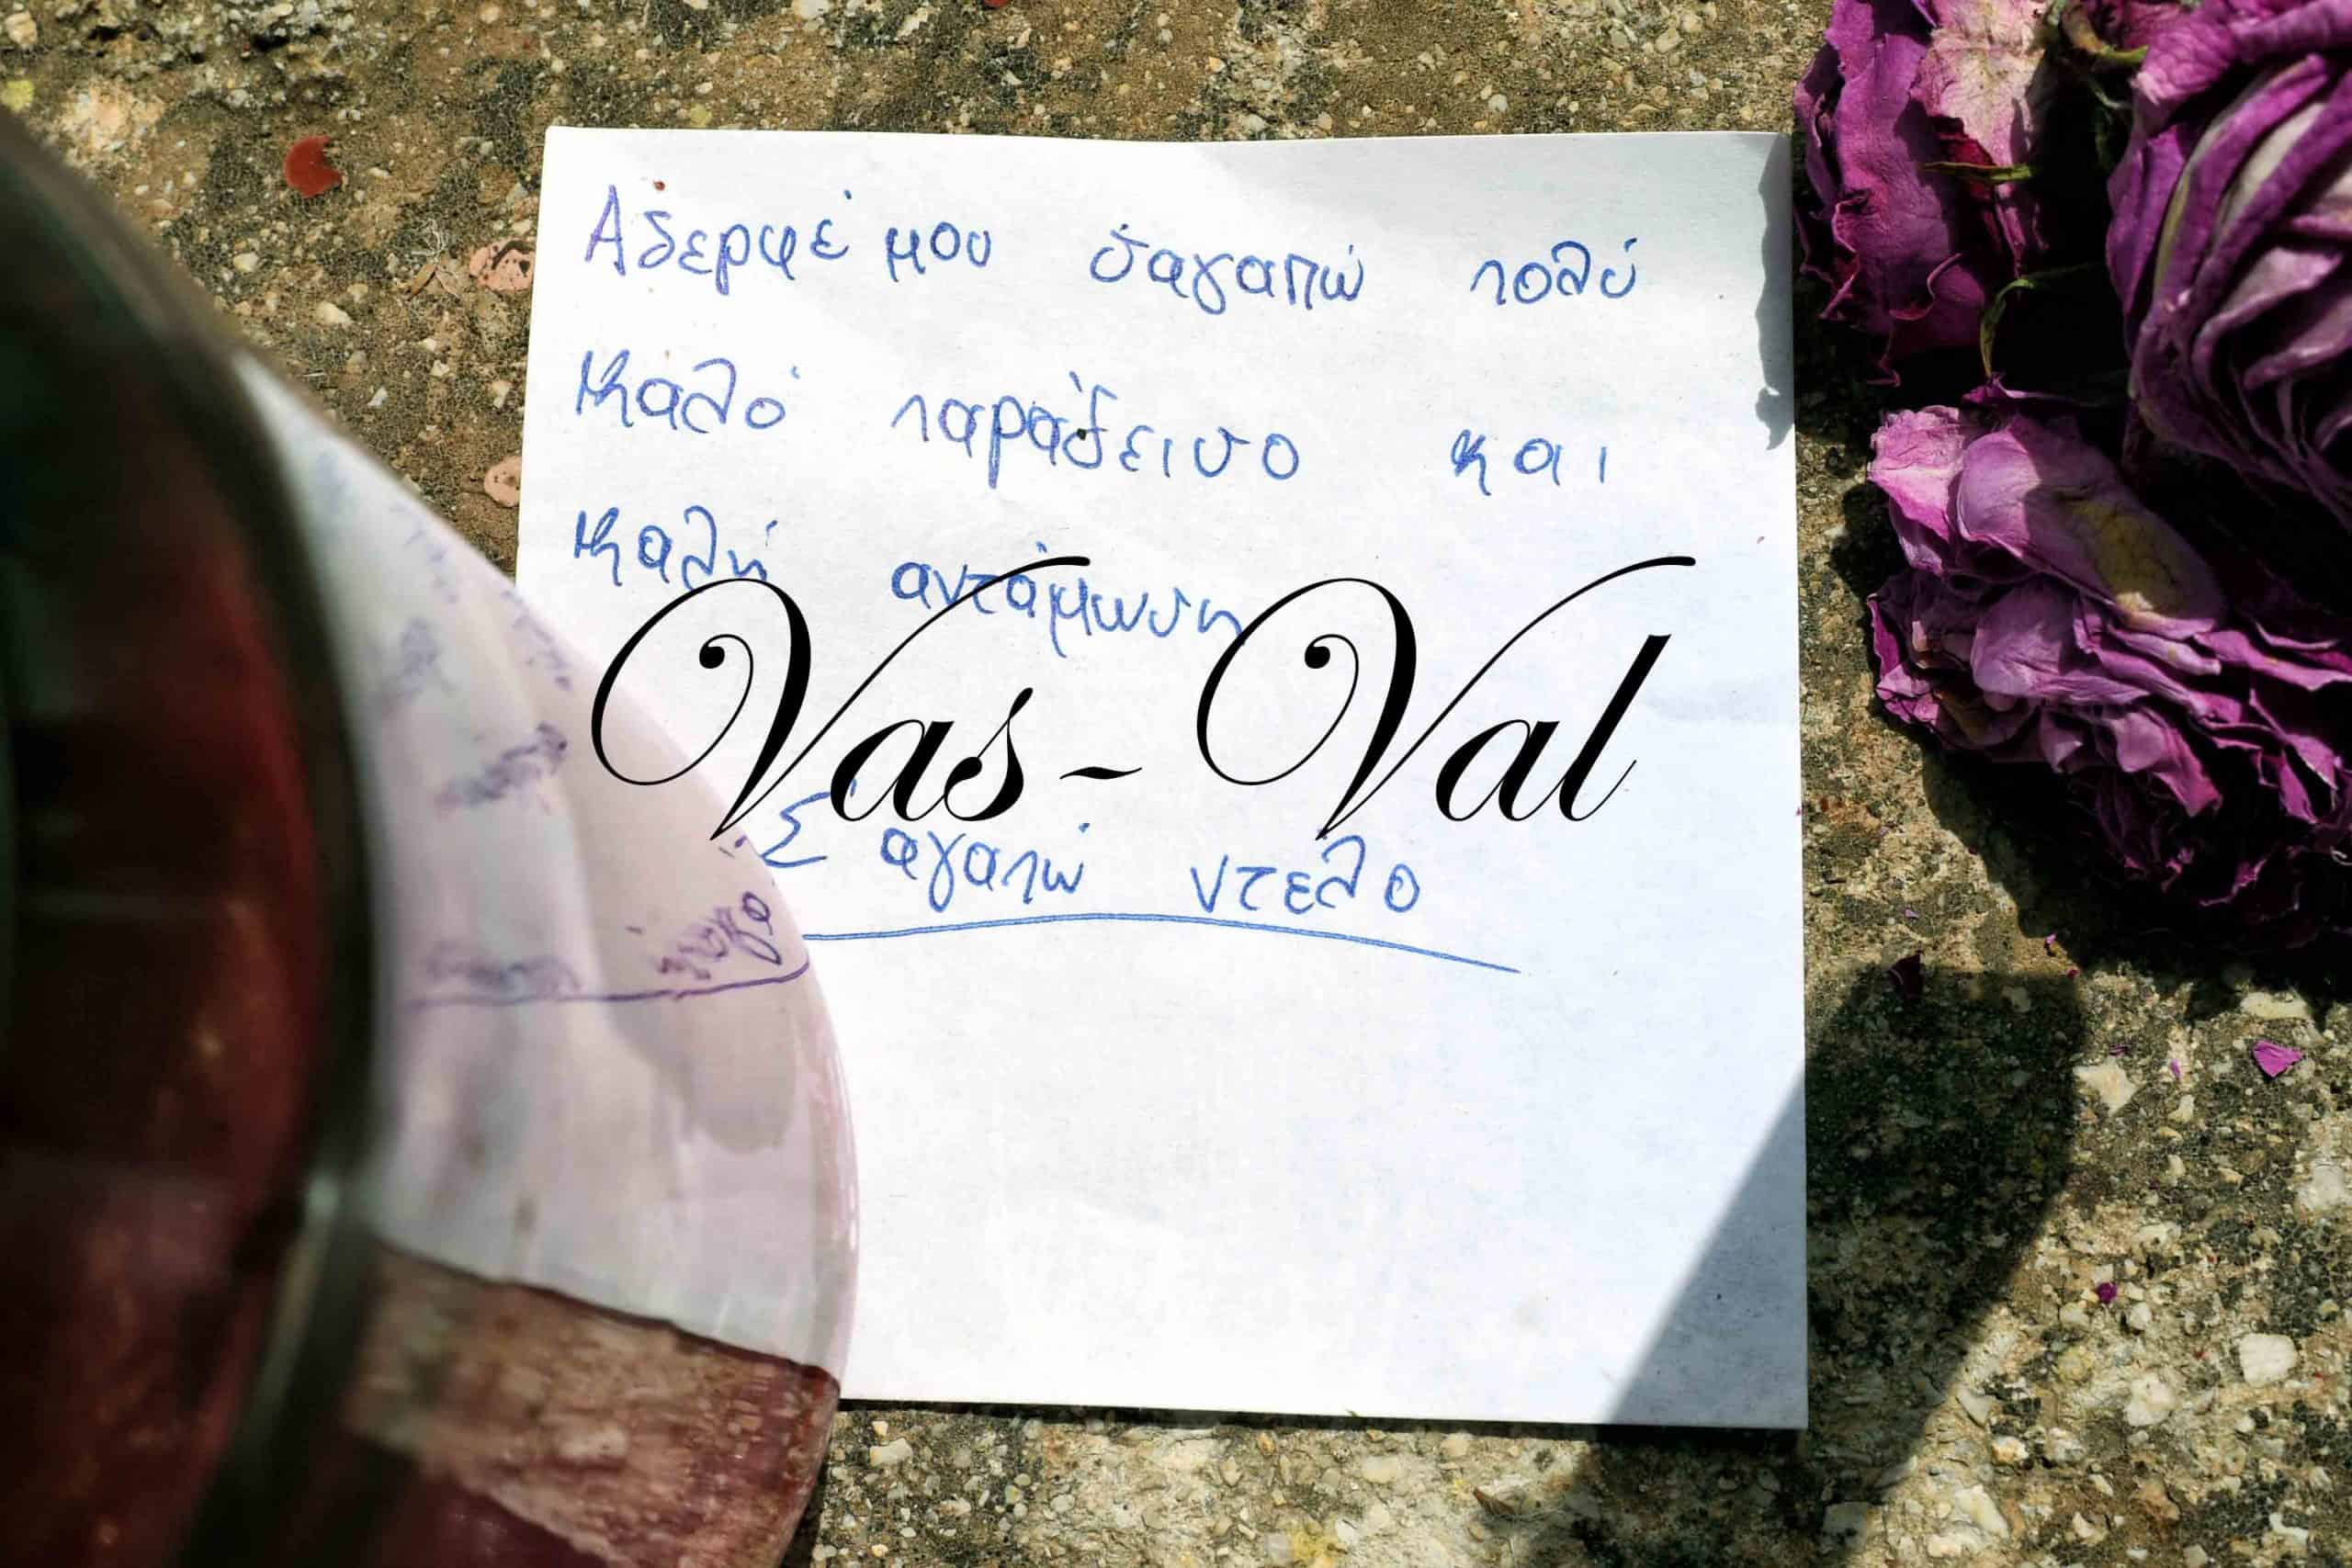 Αδερφέ μου σ'αγαπώ πολύ
Καλό παράδεισο και
Καλή αντάμωση
Vas-Val
Σ'αγαπώ ντελο